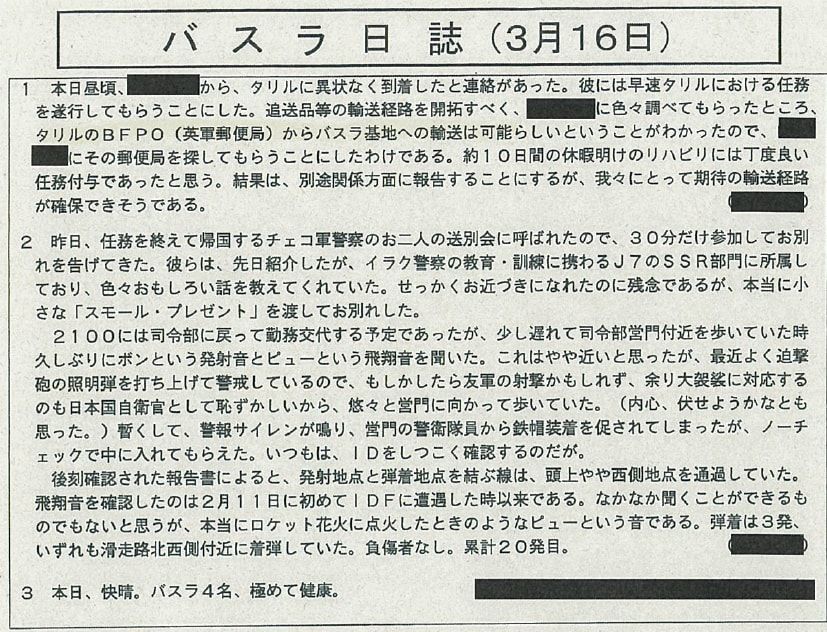 バスラ日誌（3月16日）
1　本日昼頃、から、タリルに異状なく到着したと連絡があった。彼には早速タリルにおける任務
を遂行してもらうことにした。追送品等の輸送経路を開拓すべく、に色々調べてもらったところ、
タリルのＢＦＰＯ（英軍郵便局）からバスラ基地への輸送は可能らしいということがわかったので、
にその郵便局を探してもらうことにしたわけである。約１０日間の休暇明けのリハビリには丁度良い
任務付与であったと思う。結果は、別途関係方面に報告することにするが、我々にとって期待の輸送経路
が確保できそうである。（）
2　昨日、任務を終えて帰国するチェコ軍警察のお二人の送別会に呼ばれたので、３０分だけ参加してお別
れを告げてきた。彼らは、先日紹介したが、イラク警察の教育・訓練に携わるＪ７のＳＳＲ部門に所属し
ており、色々おもしろい話を教えてくれていた。せっかくお近づきになれたのに残念であるが、本当に小
さな「スモール・プレゼント」を渡してお別れした。
２１００には司令部に戻って勤務交代する予定であったが、少し遅れて司令部営門付近を歩いていた時
久しぶりにボンという発射音とピューという飛翔音を聞いた。これはやや近いと思ったが、最近よく迫撃
砲の照明弾を打ち上げて警戒しているので、もしかしたら友軍の射撃かもしれず、余り大袈裟に対応する
のも日本国自衛官として恥ずかしいから、悠々と営門に向かって歩いていた。（内心、伏せようかなとも
思った。）暫くして、警報サイレンが鳴り、営門の警衛隊員から鉄帽装着を促されてしまったが、ノーチ
ェックで中に入れてもらえた。いつもは、ＩＤをしつこく確認するのだが。
後刻確認された報告書によると、発射地点と弾着地点を結ぶ線は、頭上やや西側地点を通過していた。
飛翔音を確認したのは２月１１日に初めてＩＤＦに遭遇した時以来である。なかなか聞くことができるも
のでもないと思うが、本当にロケット花火に点火したときのようなピューという音である。弾着は３発、
いずれも滑走路北西側付近に着弾していた。負傷者なし。累計２０発目。（）
3　本日、快晴。バスラ４名、極めて健康。